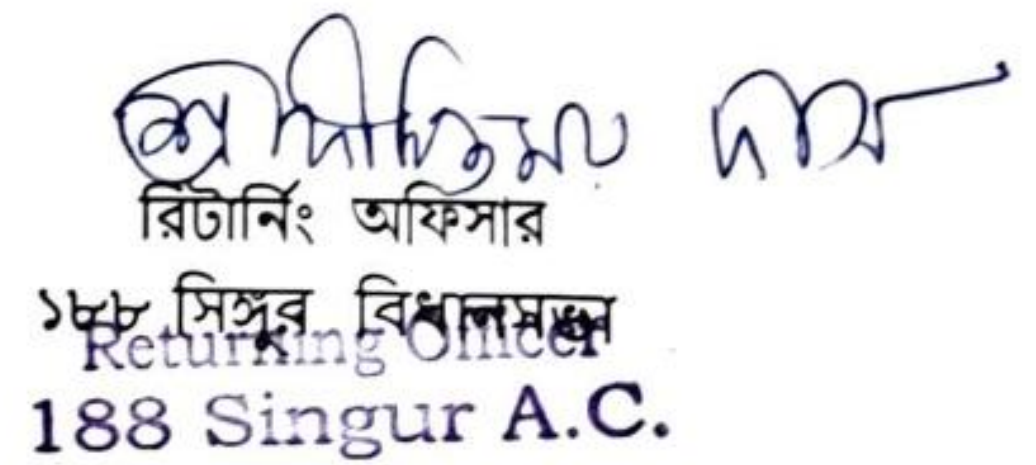 শ্রী দীপ্তিময় দাস
রিটার্নিং অফিসার
১৮৮ সিঙ্গুর বিধানসভা
Returning Officer
188 Singur A.C.